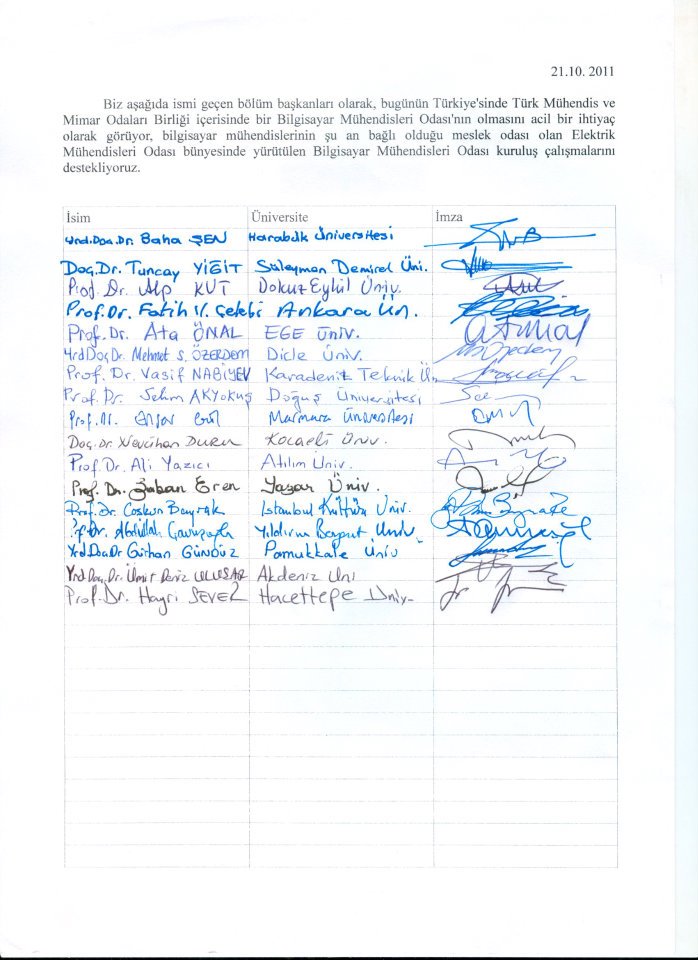 21.10. 2011
Biz aşağıda ismi geçen bölüm başkanları olarak, bugünün Türkiye'sinde Türk Mühendis ve
Mimar Odaları Birliği içerisinde bir Bilgisayar Mühendisleri Odası'nın olmasını acil bir ihtiyaç
olarak görüyor, bilgisayar mühendislerinin şu an bağlı olduğu meslek odası olan Elektrik
Mühendisleri Odası bünyesinde yürütülen Bilgisayar Mühendisleri Odası kuruluş çalışmalarını
destekliyoruz.
İsim Üniversite İmza
Yrd.Doç.Dr. Baha ŞEN Karabük Üniversitesi
Doç.Dr. Tuncay YİĞİT Süleyman Demirel Üni.
Prof. Dr. Alp KUT Dokuz Eylül Üniv.
Prof. Dr. Fatih V. Çelebi Ankara Ün.
Prof. Dr. Ata ÖNAL EGE Üniv.
Yrd Doç Dr. Mehmet S. ÖZERDEM Dicle Üniv.
Prof. Dr. Vasif NABİYEV Karadeniz Teknik Ün
Prof. Dr. Selim AKYOKUŞ Doğuş Üniversitesi
Prof. Dr. Marmara Üniversitesi
Doç. Dr. Nevcihan DURU Kocaeli Üniv.
Prof. Dr. Ali Yazıcı Atılım Üniv.
Prof. Dr. Şaban Eren Yaşar Üniv.
Prof. Dr. Coşkun Bayrak İstanbul Kültür Üniv.
Dr. Abdullah Yıldırım Beyazıt Üniv
Yrd Doç Dr Gürhan GÜNDÜZ Pamukkale Üniv
Yrd Doç. Dr. Ümit Deniz ULUŞAR Akdeniz Üni
Prof. Dr. Hayri SEVER Hacettepe Üniv.